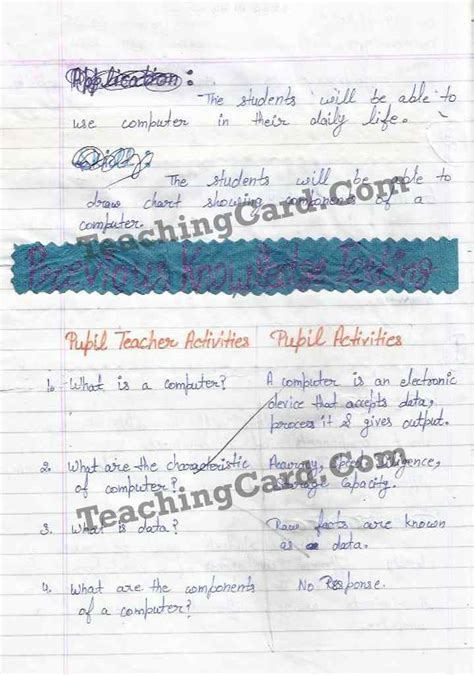 Application :
The students will be able to
use computer in their daily life.
Skill :
The students will be able to
draw chart showing components of a
computer.
TeachingCard.Com
Previous Knowledge Testing
Pupil Teacher Activities
Pupil Activities
1. What is a computer?
A computer is an electronic
device that accepts data,
process it & gives output.
2. What are the characteristic
of computer?
Accuracy, Speed, Diligence,
Storage Capacity.
TeachingCard.Com
3. What is data?
Raw facts are known
as data.
4. What are the components
of a computer?
No Response.